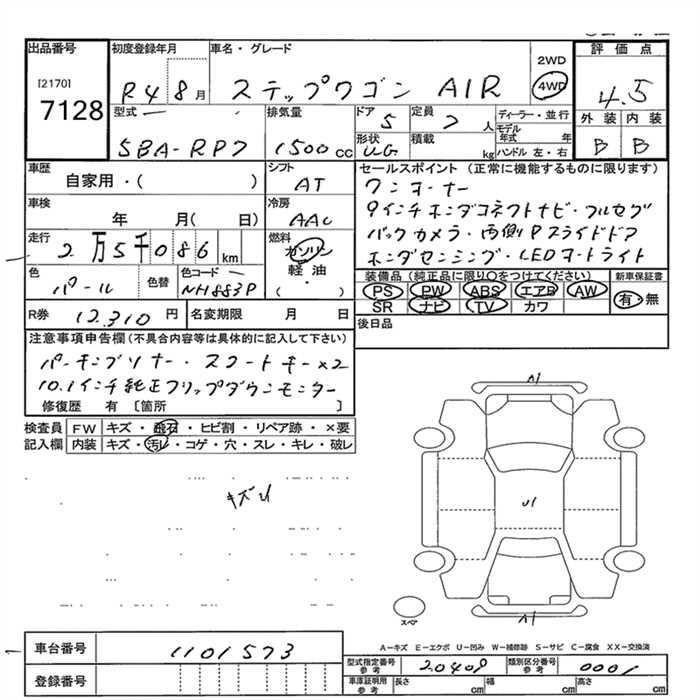 出品番号
[2170]
7128
初度登録年月
R4 8月
車名・グレード
ステップワゴン AIR
2WD
4WD
評価点
4.5
外装 内装
B B
型式
5BA-RP7
排気量
1500cc
ドア
5
形状
UG
定員
7人
積載
kg
ディーラー・並行
モデル年式 年
ハンドル 左・右
車歴
自家用・( )
シフト
AT
車検
年 月( 日)
冷房
AAC
走行
2万5千086km
燃料
ガソリン
軽油
・( )
色
パール
色替
色コード
NH883P
R券
12,310円
名変期限 月 日
セールスポイント (正常に機能するものに限ります)
ワンオーナー
9インチホンダコネクトナビ・フルセグ
バックカメラ・両側Pスライドドア
ホンダセンシング・LEDオートライト
装備品(純正品に限り○をつけてください)
PS PW ABS エアB AW
SR ナビ TV カワ
新車保証書
有・無
後日品
注意事項申告欄(不具合内容等は具体的に記入して下さい)
パーキングソナー・スマートキー×2
10.1インチ純正フリップダウンモニター
修復歴 有 [箇所 ]
検査員記入欄
FW キズ・飛石・ヒビ割・リペア跡・×要
内装 キズ・汚レ・コゲ・穴・スレ・キレ・破レ
A1
U1
A1
スペア
A-キズ E-エクボ U-凹み W-補修跡 S-サビ C-腐食 XX-交換済
車台番号
1101573
登録番号
型式指定番号 参考
20409
類別区分番号 参考
0001
車庫証明用 参考
長さ cm
幅 cm
高さ cm